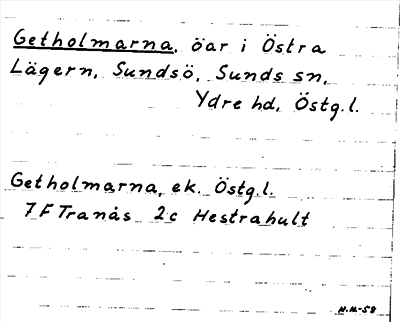 Getholmarna, öar i Östra
Lägern, Sundsö, Sunds sn,
Ydre hd, Östg.l.
Getholmarna, ek. Östg.l.
7F Tranås 2c Hestrahult
H.H-58